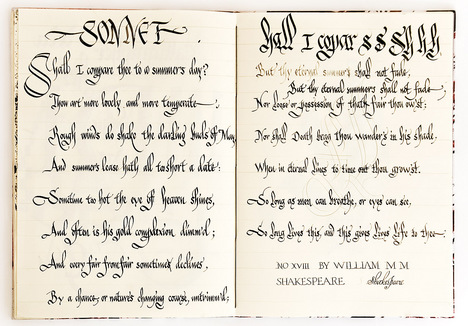 SONNET
Shall I compare thee to a summer's day?
Thou art more lovely and more temperate:
Rough winds do shake the darling buds of May,
And summers lease hath all too short a date:
Sometime too hot the eye of heaven shines,
And often is his gold complexion dimm'd;
And every fair from fair sometimes declines,
By a chance, or nature's changing course, untrimm'd;
Shall I
But thy eternal summer's shall not fade,
But thy eternal summer's shall not fade
Nor loose possession of that fair thou ow'st:
Nor shall Death brag thou wander's in his shade,
When in eternal lines to time out thou grow'st.
So long as men can breathe, or eyes can see,
So long lives this, and this gives life to thee
NO XVIII BY WILLIAM M M
SHAKESPEARE Shakespeare